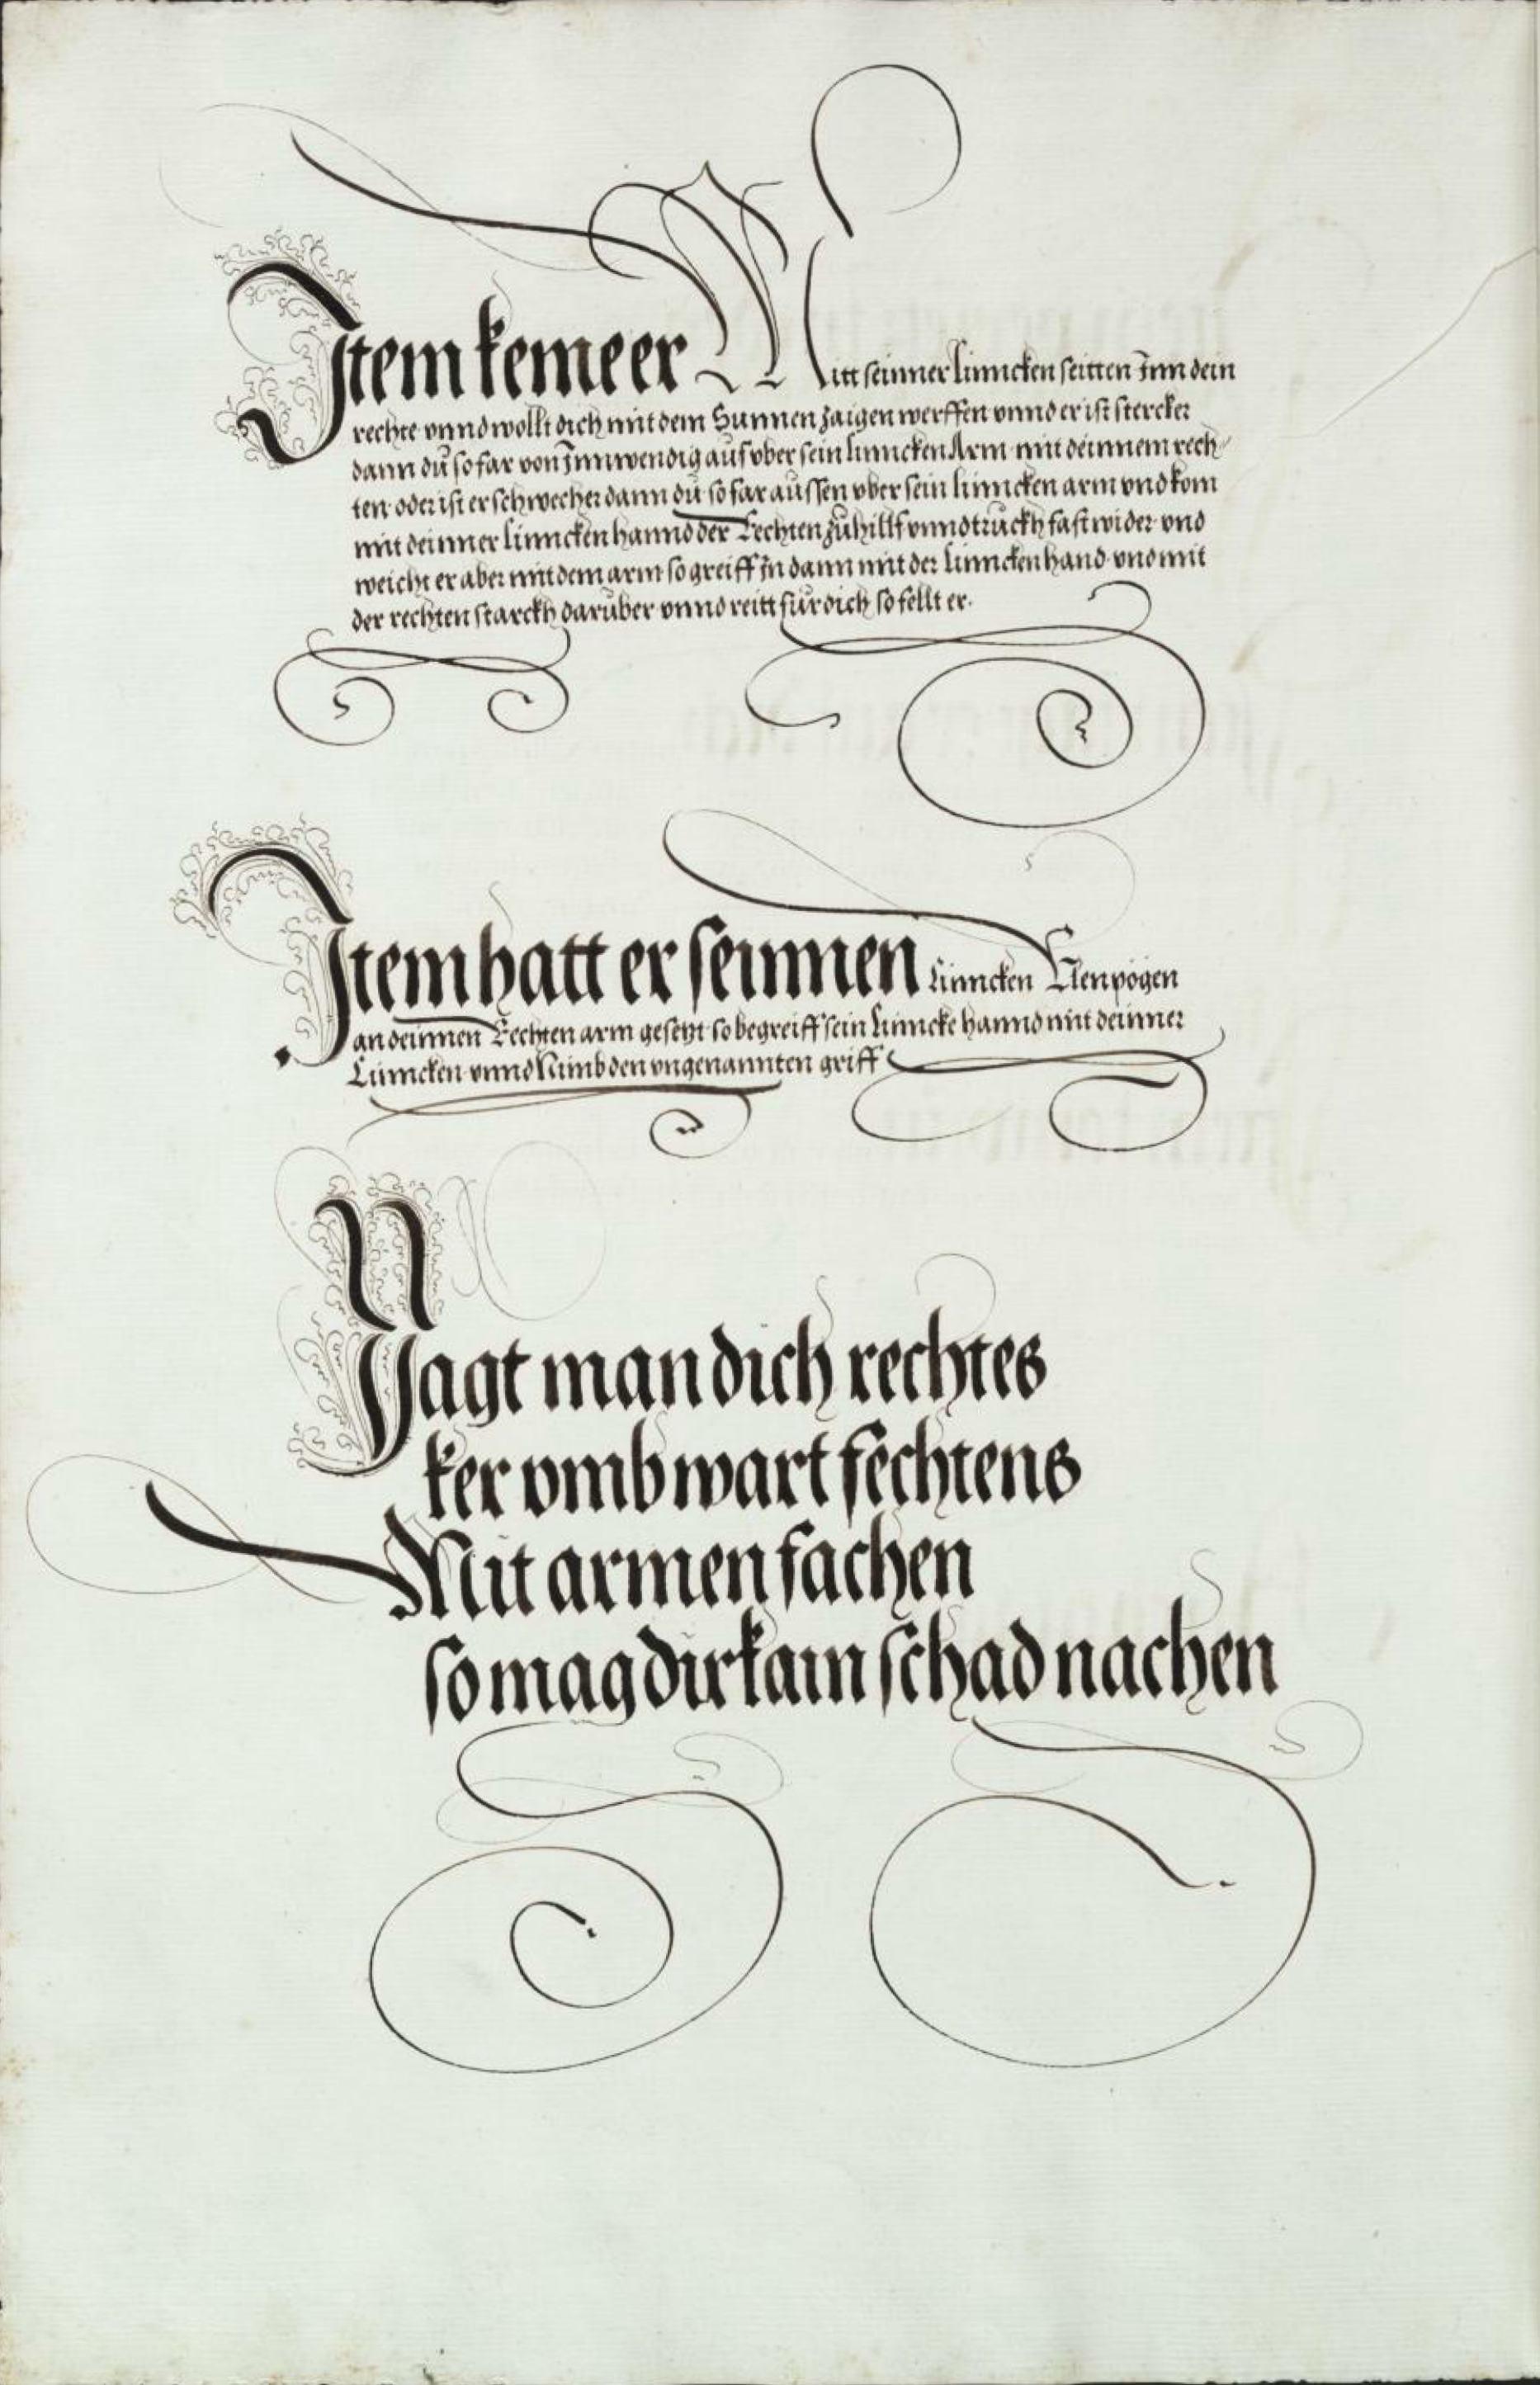 Item keme er Mitt seinner linncken seitten Inn dein
rechte vnnd wollt dich mit dem Sunnen zaigen werffen vnnd er ist stercker
dann dü so far von Innwendig aus vber sein linncken Arm mit deinnem rech-
ten oder ist er schwecher dann dü so far aussen vber sein linncken arm vnd kom
mit deinner linncken hannd der Rechten zühillf vnnd trückh fast wider vnd
weicht er aber mit dem arm so greiff In dann mit der linncken hand vnd mit
der rechten starckh darüber vnnd reitt für dich so fellt er.
Item hatt er seinnen Linncken Elenpogen
an deinnen Rechten arm gesetzt so begreiff sein linncke hannd mit deinner
Linncken vnnd Nimb den vngenannten griff
Yagt man dich rechtes
ker vmb wart fechtens
Mit armen fachen
so mag dir kain schad nachen